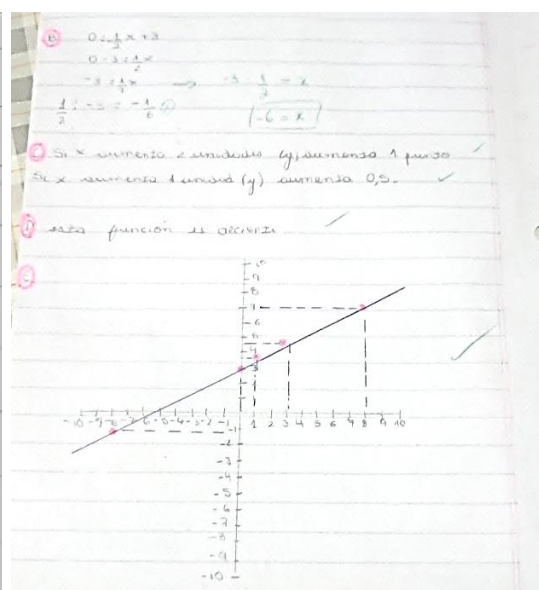 B 0=1/2x+3
0-3=1/2x
-3=1/2x → -3 : 1/2 = x
1/2 : -3 = -1/6 -6=x
C Si x aumenta 2 unidades (y) aumenta 1 punto
Si x aumenta 1 unidad (y) aumenta 0,5.
D esta función es
10
9
8
7
6
5
4
3
-10 -9 -8 -7 -6 -5 -4 -3 -2 -1 1 2 3 4 5 6 7 8 9 10
-1
-2
-3
-4
-5
-6
-7
-8
-9
-10